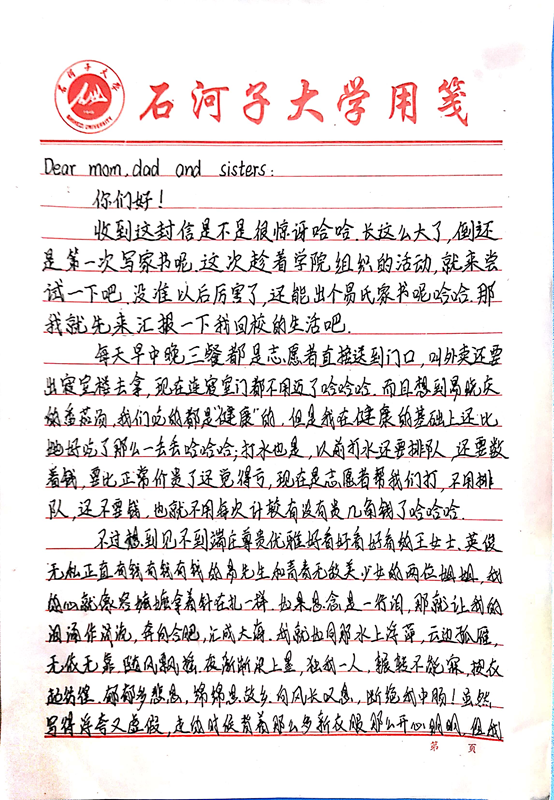 石河子大学
SHIHEZI UNIVERSITY
石河子大学用笺
Dear mom, dad and sisters:
你们好!
收到这封信是不是很惊讶哈哈.长这么大了,倒还
是第一次写家书呢.这次趁着学院组织的活动,就来尝
试一下吧.没准以后厉害了,还能出个易氏家书呢哈哈.那
我就先来汇报一下我回校的生活吧.
每天早中晚三餐都是志愿者直接送到门口,叫外卖还要
出寝室楼去拿,现在连寝室门都不用迈了哈哈哈.而且想到易晓庆
的番茄汤,我们吃的都是“健康”的,但是我在健康的基础上还比
她好吃了那么一丢丢哈哈哈;打水也是,以前打水还要排队,还要数
着钱,要比正常价贵了还觉得亏,现在是志愿者帮我们打,不用排
队,还不要钱,也就不用每次计较有没有贵几角钱了哈哈哈.
不过想到见不到端庄尊贵优雅好看好看好看的王女士、英俊
无私正直有钱有钱有钱的易先生和青春无敌美少女的两位姐姐,我
的心就像容嬷嬷拿着针在扎一样.如果思念是一行泪,那就让我的
泪涌作清流,奔向合肥,汇成大海.我就如同那水上浮萍,云边孤雁,
无依无靠,随风飘摇,夜渐渐染上墨,独我一人,辗转不能寐,
郁郁多悲思,绵绵思故乡.向风长叹息,断绝我中肠!虽然
写得浮夸又虚假,走的时候背着那么多新衣服那么开心明明,但我
第 页